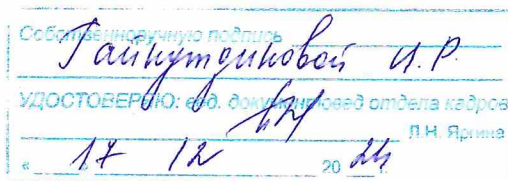 Собственноручную подпись
Гайнутдиновой И.Р.
УДОСТОВЕРЯЮ: вед. документовед отдела кадров
Л.Н. Яргина
« 17 12 20 24 г.